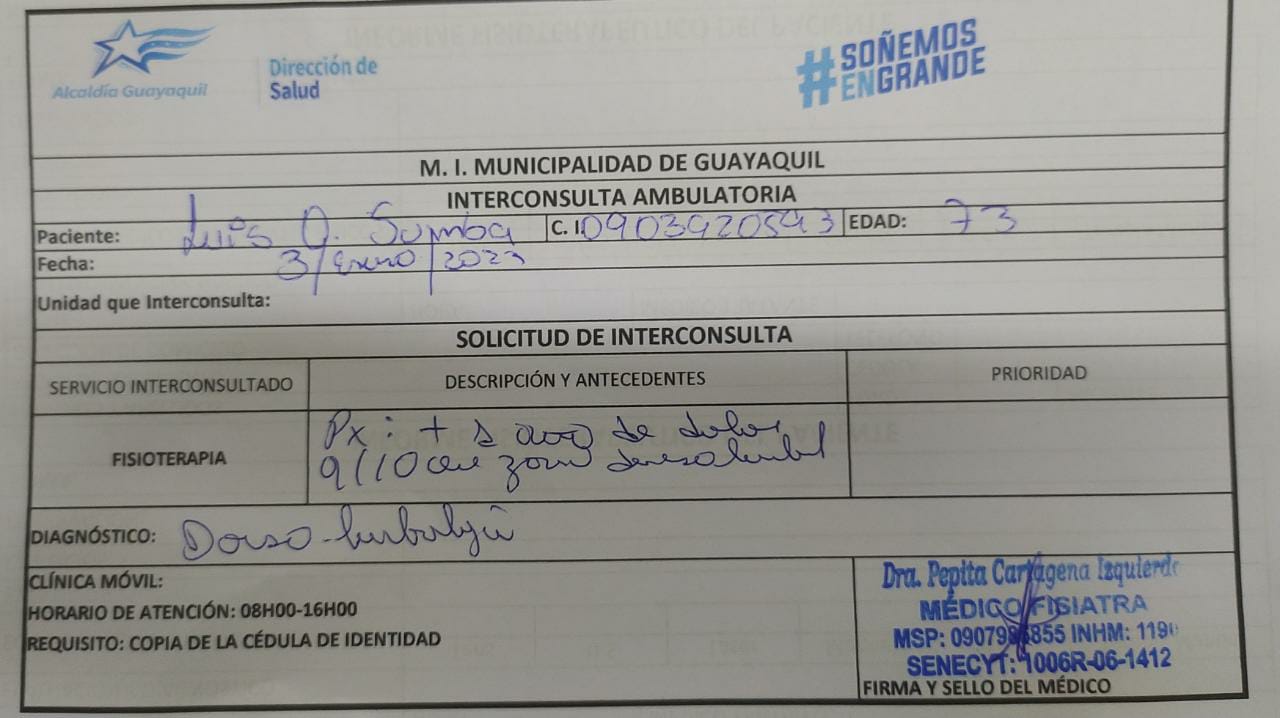 Alcaldía Guayaquil
Dirección de
Salud
#SOÑEMOS
ENGRANDE
M. I. MUNICIPALIDAD DE GUAYAQUIL
INTERCONSULTA AMBULATORIA
Paciente: Luis O. Sumba C. I. 0903920593 EDAD: 73
Fecha: 3/Enero/2023
Unidad que Interconsulta:
SOLICITUD DE INTERCONSULTA
SERVICIO INTERCONSULTADO DESCRIPCIÓN Y ANTECEDENTES PRIORIDAD
Px de dolor
FISIOTERAPIA 9/10 en zona dorsolumbal
DIAGNÓSTICO: Dorso-lumbalgia
CLÍNICA MÓVIL:
HORARIO DE ATENCIÓN: 08H00-16H00
REQUISITO: COPIA DE LA CÉDULA DE IDENTIDAD
Dra. Pepita Cartagena Izquierdo
MÉDICO FISIATRA
MSP: INHM:
SENECYT: 1006R-06-1412
FIRMA Y SELLO DEL MÉDICO